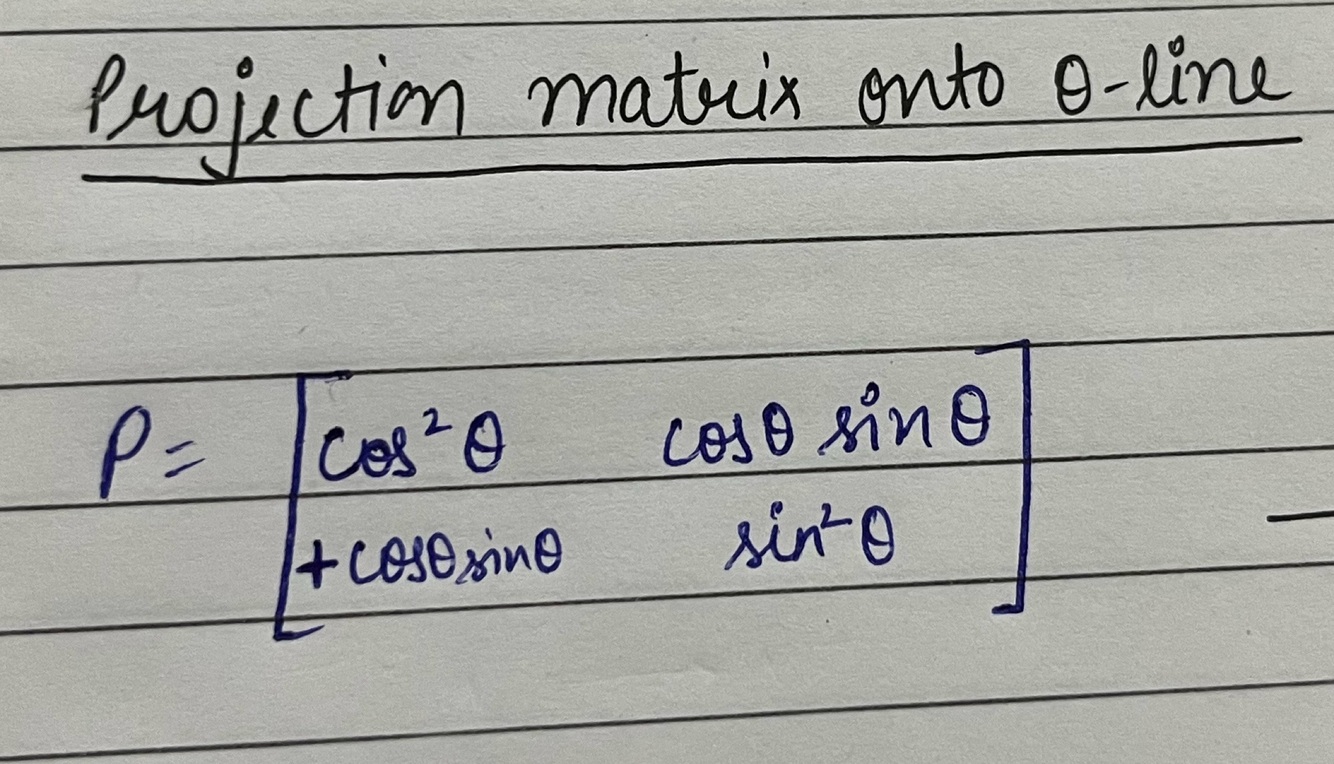 Projection matrix onto θ-line
P = [cos²θ cosθ sinθ
+cosθsinθ sin²θ]